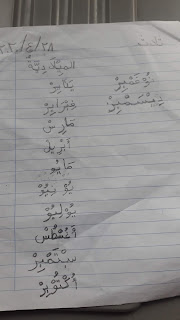 ٢٠٢٠/٤/٢٨
الميِّلَادِيَّةُ
يَنَايِرْ
فِبْرَايِرْ
مَارِسْ
أَبْرِيلْ
مَايُو
يُونْيُوْ
يُولْيُوْ
أَغُسْطُسْ
سِبْتَمْبِرْ
أُكْتُوْبِرْ
نُوفَمْبِرْ
دِيسَمْبِرْ